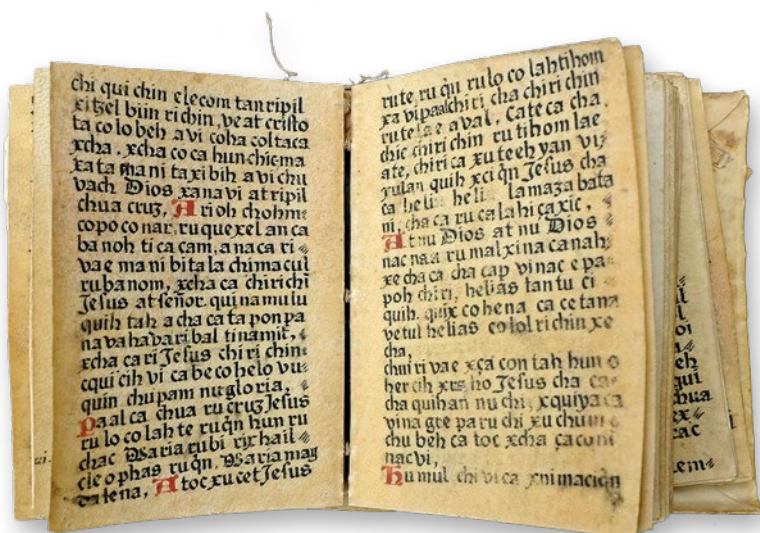 chi qui chin elecom tan ripil
xitzel biin ri chin, ve at cristo
ta co lo beh a vi coha coltaca
xcha. xcha co ca hun chic ma
xa ta ma ni ta xi bih a vi chu
vach Dios xa na vi at ripil
chua cruz, A ri oh chohm
co po co nar. ru que xel an ca
ba noh ti ca cam, a na ca ri
va e ma ni bi ta la chi ma cul
ru ba nom, xcha ca chi ri chi
Jesus at señor. qui na mu lu
quih tah a cha ca ta pon pa
na va ha va ri bal ti namit,
xcha ca ri Jesus chi ri chin
cqui cih vi ca be co helo vu
quin chu pam nu gloria,
Paal ca chua ru cruz Jesus
ru lo co lah te ru qn hun ru
chac Maria ru bi rix hail
cle o phas ru qn. Maria mag
dalena, A toc xu cet Jesus
ru te, ru qui ru lo co lah ti hom
xa vi paal chi ri cha chi ri chin
ru te la e a val. Cate ca cha
chic chi ri chin ru ti hom lae
ate, chi ri ca xu te eh yan vi
xulan quih xci qn Jesus cha
ca heli heli lamaza bata
ni, cha ca ru ca la hi ca xic,
At nu Dios at nu Dios
nac na a ru mal xi na ca nah
xe cha ca cha cap vi nac e pa
poh chi ri, helias tan tu ci
quih. quix co he na ca ce ta na
ve tul helias co lol ri chin xe
cha,
chui ri va e xça con tah hun o
her cih xrs ho Jesus cha ca
cha quihan nu chi, xqui ya ca
vina gre pa ru chi xu chu
chu beh ca toc xcha ça co ni
nac vi,
Humul chi vi ca xni macion